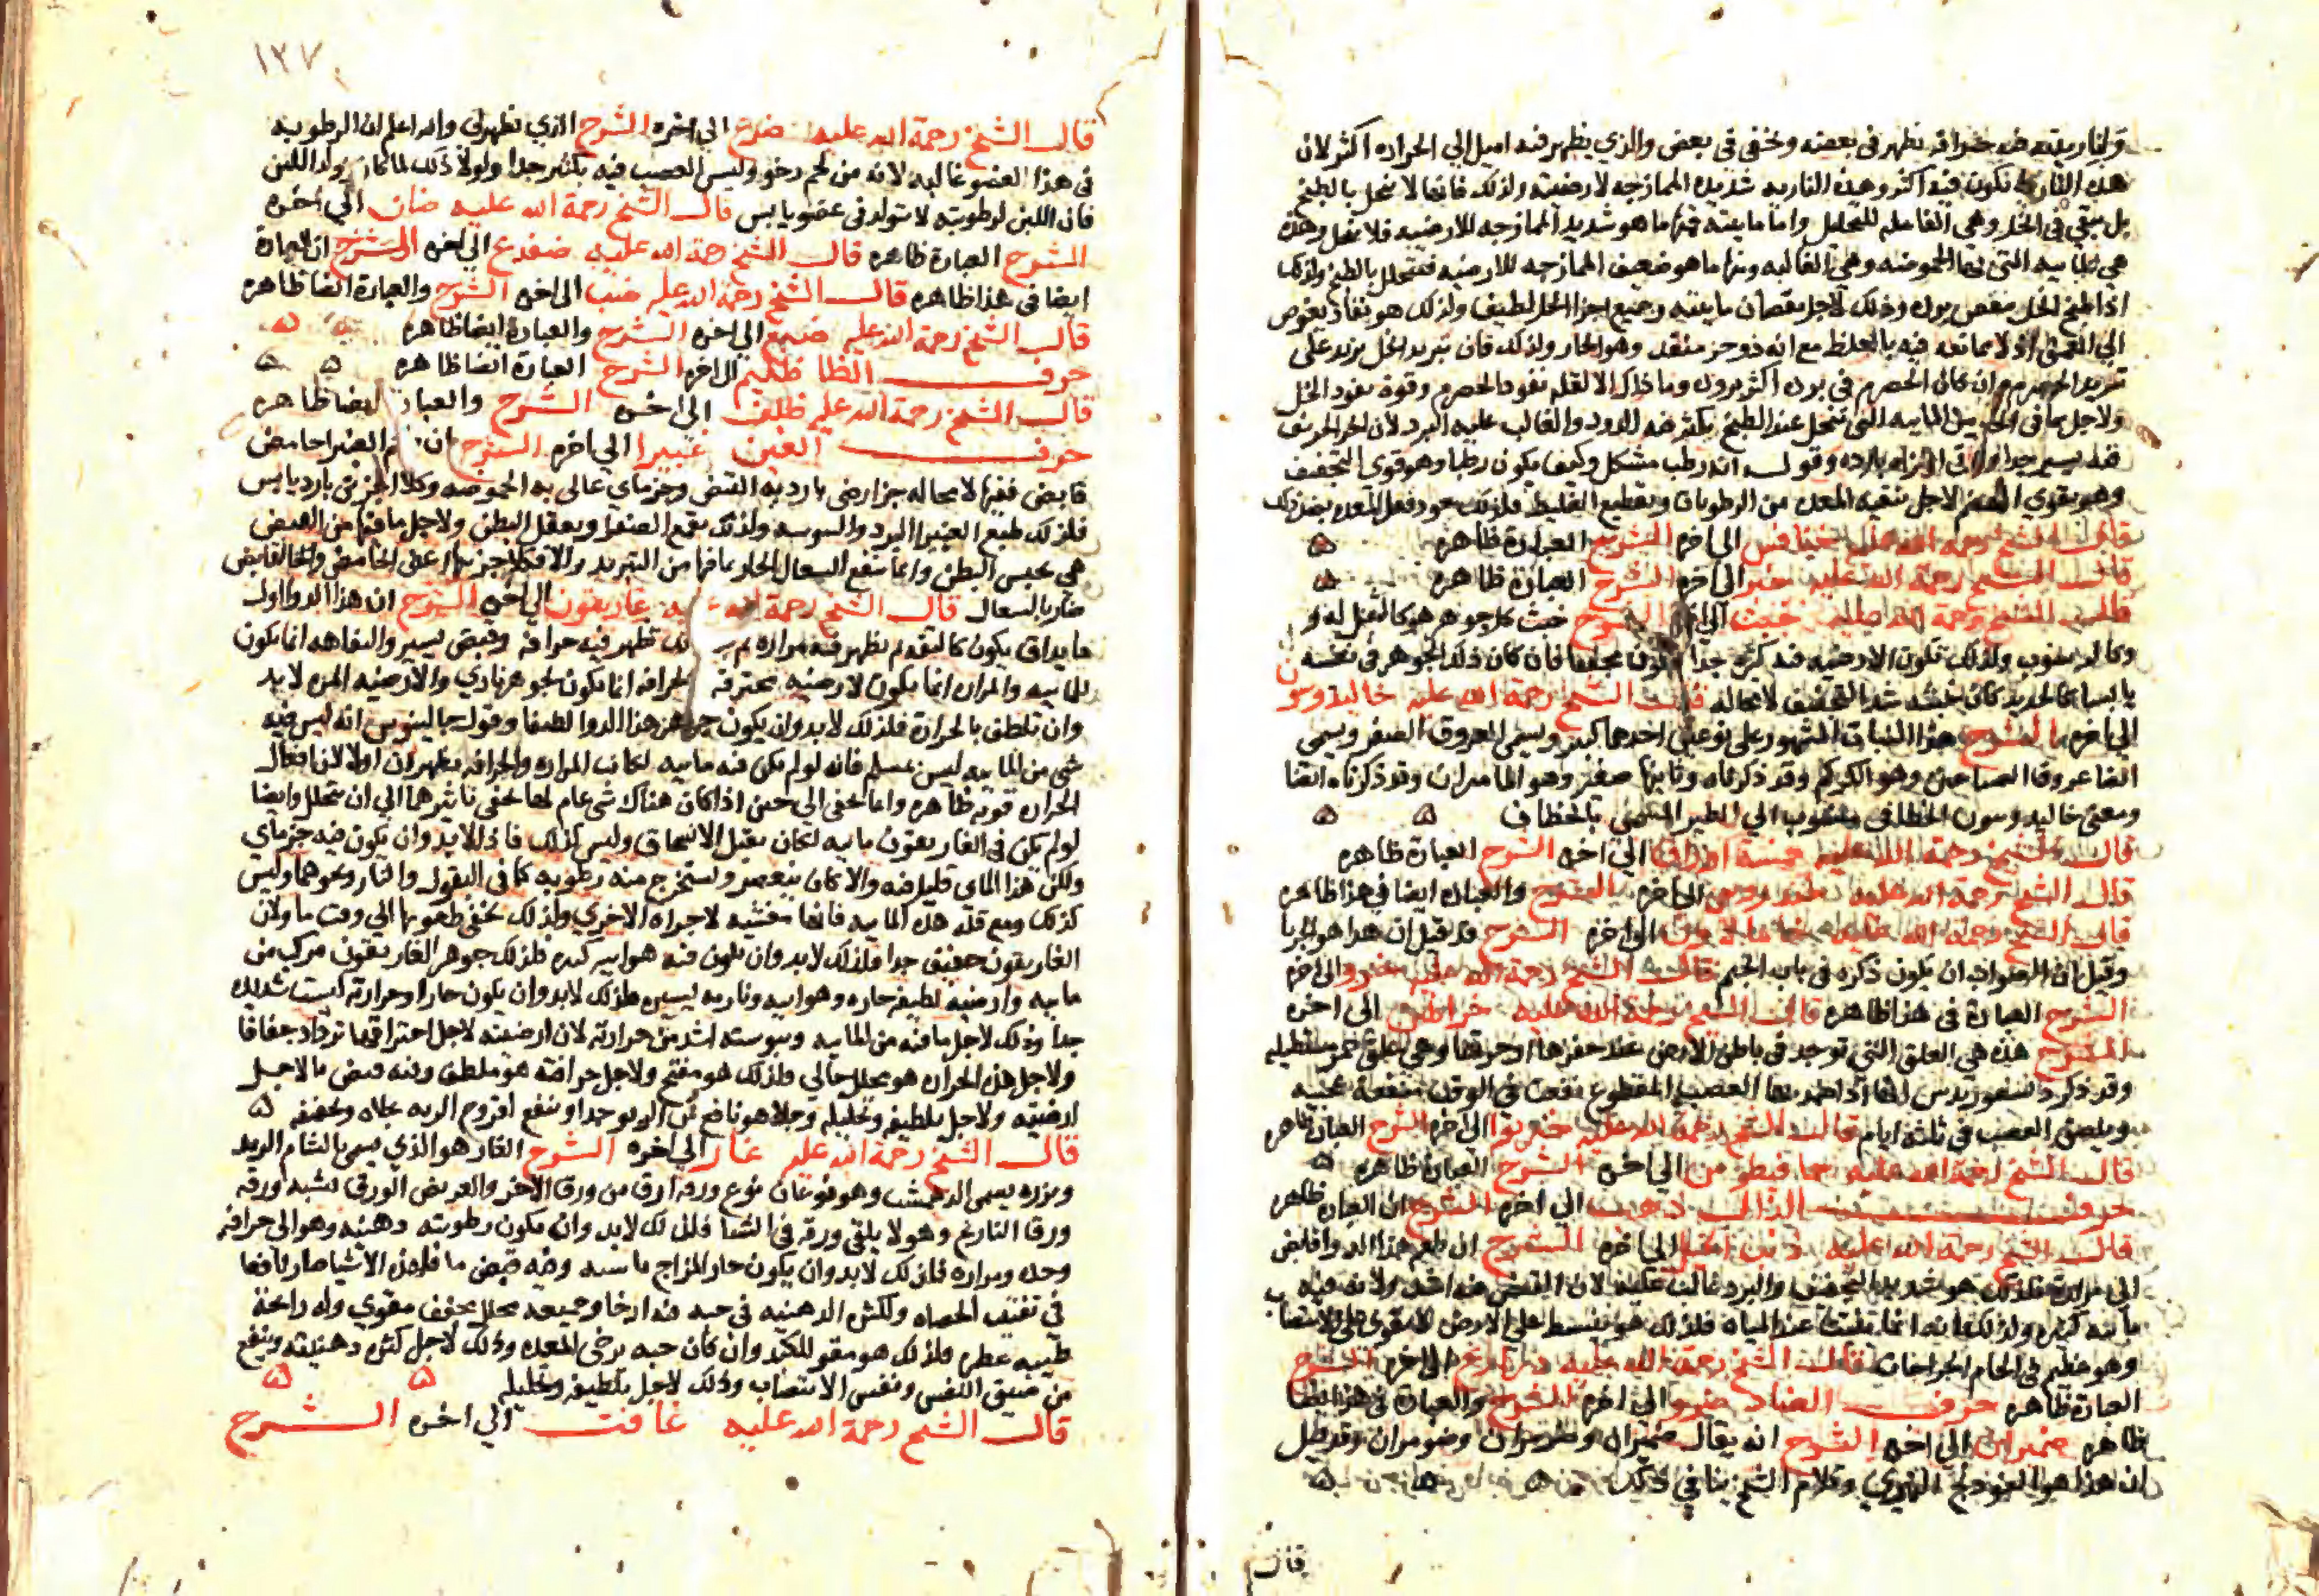 ولناريته فيه حرافة تظهر في بعضه وتخفى في بعض والذي يظهر فيه اميل الى الحراره اكثر لان
هذه النارية تكون فيه اكثر وهذه الناريه شديده الممازجه لارضيته ولذلك فانها لا تنحل بالطبخ
بل تبقى في الخل وهي الفاعله للتحليل واما مايته فمنها ما هو شديد الممازجه للارضيه فلا تنحل وهذه
هي المايه التي لها الحموضه وهي الغالبه ومنها ما هو ضعيف الممازجه للارضيه فتتحلل بالطبخ ولذلك
اذا طبخ الخل نقص برده وذلك لاجل نقصان مايته وجميع اجزا الخل لطيف ولذلك هو نفاذ يغوص
الى العمق اذ لا ممانعه فيه بالغلظ مع انه ذو حر منفذ وهو الحار ولذلك فان تبريد الخل يزيد على
تبريد الحصرم وان كان الحصرم في برده اكثر وما ذاك الا لقله نفوذ الحصرم وقوة نفوذ الخل
ولاجل ما في الخل من المايه التي تنحل عند الطبخ يكثر فيه الدود والغالب عليه البرد لان الحر الحريف
فيه يسير جدا وباقي اجزاه بارده وقوله انه رطب مشكل وكيف يكون رطبا وهو قوي التجفيف
وهو يقوي الهضم لاجل تنقيه المعده من الرطوبات وتقطيع الغليظ فلذلك يجود فعل المعده بعد ذلك
قال الشيخ رحمة الله عليه خنافس الى اخره الشرح العبارة ظاهره
قال الشيخ رحمة الله عليه خبز الى اخره الشرح العبارة ظاهره
قال الشيخ رحمة الله عليه خبث الى اخره الشرح خبث كل جوهر هو كالثفل له و
يابسا كالحديد كان خبثه شديد التجفيف لا محاله قال الشيخ رحمة الله عليه خاليدونيون
الى اخره الشرح هذا النبات المشهور على نوعين احدهما كبير ويسمى العروق الصفر ويسمى
ايضا عروق الصباغين وهو الكركم وقد ذكرناه وثانيهما صغير وهو الماميران وقد ذكرناه ايضا
ومعنى خاليدونيون الخطافي منسوب الى الطير المسمى بالخطاف
قال الشيخ رحمة الله عليه خمسة اوراق الى اخره الشرح العبارة ظاهره
قال الشيخ رحمة الله عليه الى اخره الشرح والعبارة ايضا في هذا ظاهره
قال الشيخ رحمة الله عليه خامالاون الى اخره الشرح قد قيل ان هذا هو الحربا
وقيل ان الصواب ان يكون ذكره في باب الجيم قال الشيخ رحمة الله عليه الى اخره
الشرح العبارة في هذا ظاهره قال الشيخ رحمة الله عليه خراطين الى اخره
الشرح هذه هي العلق التي توجد في باطن الارض عند حفرها او حرثها وهي علق حمر مستطيله
وقد ذكر ديسقوريدس انها اذا ضمد بها العصب المقطوع نفعت في الوقت منفعة عجيبه
ويلصق العصب في ثلثه ايام قال الشيخ رحمة الله عليه الى اخره الشرح العبارة ظاهره
قال الشيخ رحمة الله عليه خمافيطوس الى اخره الشرح العبارة ظاهره
حرف الذال ذهب الى اخره الشرح ان العبارة ظاهره
قال الشيخ رحمة الله عليه ذنب الخيل الى اخره الشرح ان طعم هذا الدوا قابض
الى مرارة فلذلك هو شديد التجفيف والبرد غالب عليه لان القبض فيه اشد ولانه فيه
مايه كثيره ولذلك فانه انما ينبت عند المياه فلذلك هو منبسط على الارض لا يقوى على الانتصاب
وهو عظيم في الحام الجراحات قال الشيخ رحمة الله عليه ذراريح الى اخره الشرح
العبارة ظاهره حرف الضاد ضرو الى اخره الشرح والعبارة في هذا ايضا
ظاهره ضميران الى اخره الشرح انه يقال ضيمران وضومران وقد قيل
ان هذا هو الفودنج النهري وكلام الشيخ ينافي ذلك
قال
١٢٧
قال الشيخ رحمة الله عليه ضرع الى اخره الشرح الذي يظهر لي والله اعلم ان الرطوبه
في هذا العضو غالبه لانه من لحم رخو وليس العصب فيه بكثير جدا ولولا ذلك لما كان يولد اللبن
فان اللبن لرطوبته لا يتولد في عضو يابس قال الشيخ رحمة الله عليه ضان الى اخره
الشرح العبارة ظاهره قال الشيخ رحمة الله عليه ضفدع الى اخره الشرح ان العبارة
ايضا في هذا ظاهره قال الشيخ رحمة الله عليه ضب الى اخره الشرح والعبارة ايضا ظاهره
قال الشيخ رحمة الله عليه ضبع الى اخره الشرح والعبارة ايضا ظاهره
حرف الظا ظليم الى اخره الشرح العبارة ايضا ظاهره
قال الشيخ رحمة الله عليه ظلف الى اخره الشرح والعبارة ايضا ظاهره
حرف الغين غبيرا الى اخره الشرح ان طعم الغبيرا حامض
قابض ففيها لا محاله جز ارضي بارد به القبض وجز ماي عالى به الحموضه وكلا الجزئين بارد يابس
فلذلك طبع الغبيرا البرد واليبوسه ولذلك يقمع الصفرا ويعقل البطن ولاجل ما فيها من القبض
هي تحبس البطن وانما تنفع السعال الحار بما فيها من التبريد والا فكلا جزئيها اعني الحامض والقابض
ضار بالسعال قال الشيخ رحمة الله عليه غاريقون الى اخره الشرح ان هذا الدوا اول
ما يذاق يكون كالتفه ثم يظهر فيه مراره ثم بعد ذلك تظهر فيه حرافة وقبض يسير والتفاهه انما تكون
للمايه والمراره انما تكون لارضيه محترقه والحرافه انما تكون لجوهر ناري والارضيه المره لا بد
وان تلطف بالحرارة فلذلك لا بد وان يكون جوهر هذا الدوا لطيفا وقول جالينوس انه ليس فيه
شي من المايه ليس بمسلم فانه لو لم يكن فيه مايه لكانت المراره والحرافه يظهران اولا لان افعال
الحراره قويه ظاهره وانما تخفى الى حين اذا كان هناك شي عام لها يخفي تاثيرها الى ان يتحلل وايضا
لو لم يكن في الغاريقون مايه لكان يقبل الانسحاق وليس كذلك فاذا لا بد وان يكون فيه جز ماي
ولكن هذا الماي قليل فيه والا كان ينعصر ويستخرج منه رطوبه كما في البقول والثمار ونحوهما وليس
كذلك ومع قله هذه المايه فانها مغشيه لاجزاه الاخرى ولذلك تخفى طعومها الى وقت ما ولان
الغاريقون خفيف جدا فلذلك لا بد وان تكون فيه هوايه كثيره فلذلك جوهر الغاريقون مركب من
مايه وارضيه لطيفه حاره وهوايه وناريه يسيره فلذلك لا بد وان يكون حارا وحرارته ليست شديده
جدا وذلك لاجل ما فيه من المايه ويبوسته اشد من حرارته لان ارضيته لاجل احتراقها تزداد جفافا
ولاجل هذه الحراره هو محلل جالي ولذلك هو مفتح ولاجل حرافته هو ملطف وفيه قبض ما لاجل
ارضيته ولاجل تلطيفه وتحليله وجلاه هو نافع من الربو جدا وينفع قروح الريه بجلاه وتجفيفه
قال الشيخ رحمة الله عليه غار الى اخره الشرح الغار هو الذي يسمى بالشام الرند
وبزره يسمى الدهمشت وهو نوعان نوع ورقه ارق من ورق الاخر والعريض الورق يشبه ورقه
ورق النارنج وهو لا يلقي ورقه في الشتا فلذلك لا بد وان تكون رطوبته دهنيه وهو الى حرافه
وحده ومراره فلذلك لا بد وان يكون حار المزاج يابسه وفيه قبض ما فلهذه الاشيا صار نافعا
في تفتيت الحصاه ولكثره الدهنيه في حبه فيه ارخا وجميعه محلل مجفف مقوي وله رائحة
طيبه عطره فلذلك هو مقو للكبد وان كان حبه يرخي المعده وذلك لاجل كثره دهنيته وينفع
من ضيق النفس ونفس الانتصاب وذلك لاجل تلطيفه وتحليله
قال الشيخ رحمة الله عليه غافت الى اخره الشرح